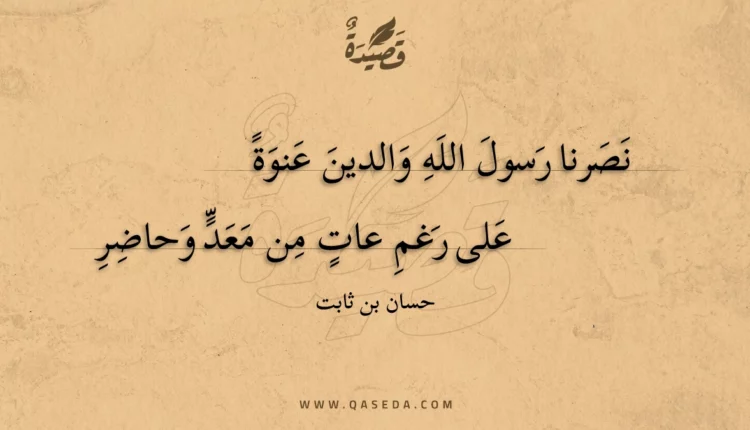 قَصِيْدَةٌ
نَصَرنا رَسولَ اللَهِ وَالدينَ عَنوَةً
عَلى رَغمِ عاتٍ مِن مَعَدٍّ وَحاضِرِ
حسان بن ثابت
WWW.QASEDA.COM